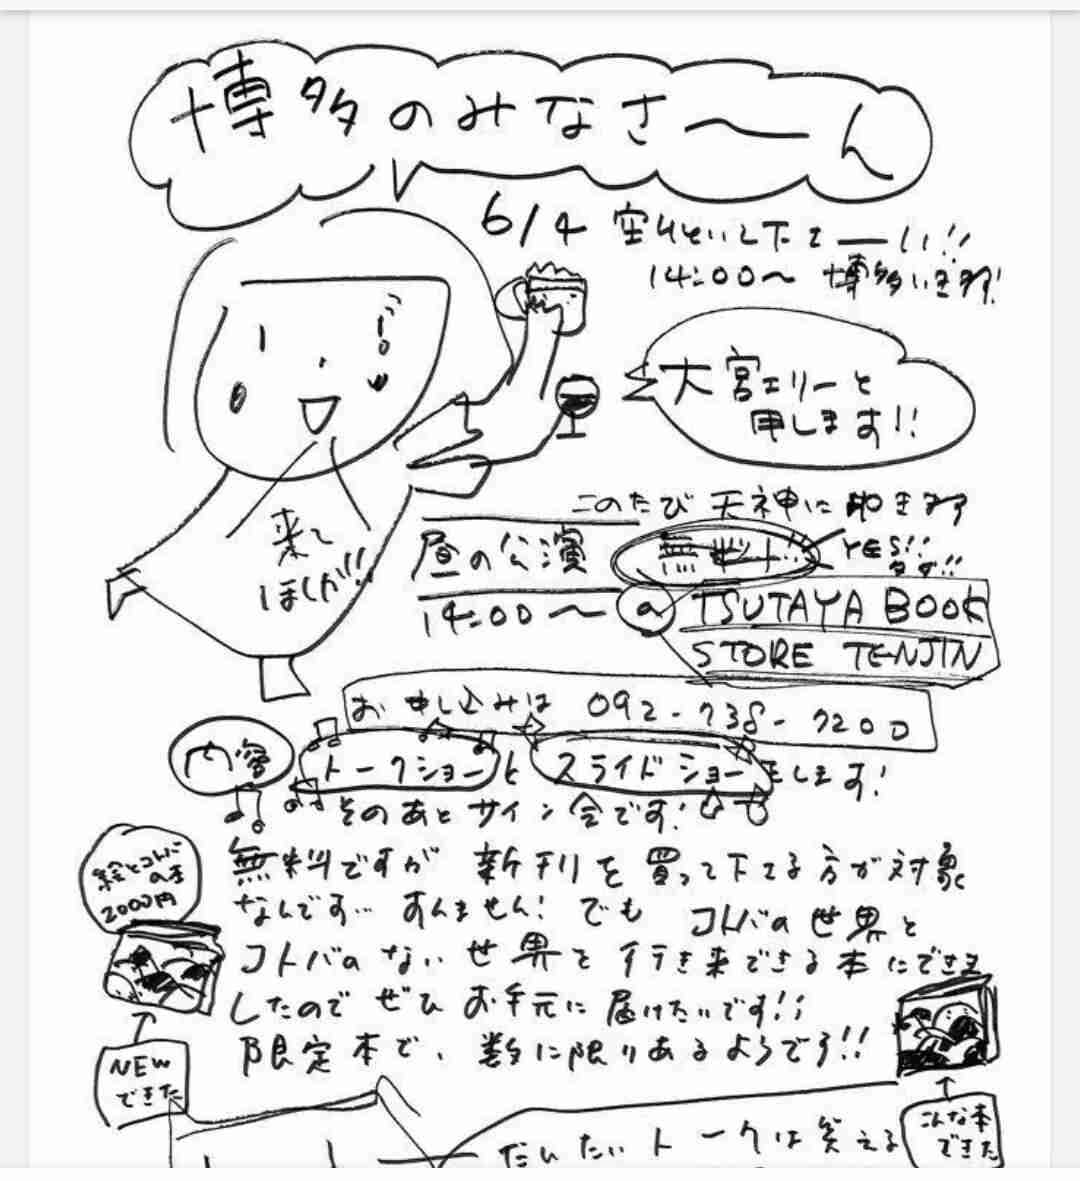 博多のみなさ〜ん
6/4 空けといて下さーい!!
14:00〜 博多いきます!
大宮エリーと
申します!!
来て
ほしか!!
このたび 天神に 行きます
昼の公演 無料!!
YES!!
タダ!!
14:00〜 @ TSUTAYA BOOK
STORE TENJIN
お申し込みは 092-738-7200
内容 トークショーと スライドショーをします!
そのあとサイン会です!
絵とコトバ
の本
2000円
無料ですが 新刊を 買って下さる方が対象
なんです… すんません! でも コトバの世界と
コトバのない世界を行き来できる本にできま
したので ぜひ お手元に 届けたいです!!
限定本で、数に限りあるようです!!
NEW
できた
こんな本
できた
だいたいトークは笑える